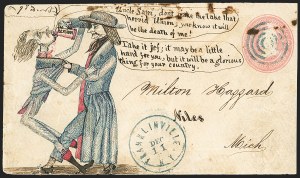 Uncle Sam, don't make me take that
horrid Union, you know it will
be the death of me!
UNION
Take it Jef; it may be a little
hard for you, but it will be a glorious
thing for your country.
Milton Haggard
Niles
Mich.
FRANKLINVILLE
N.Y.